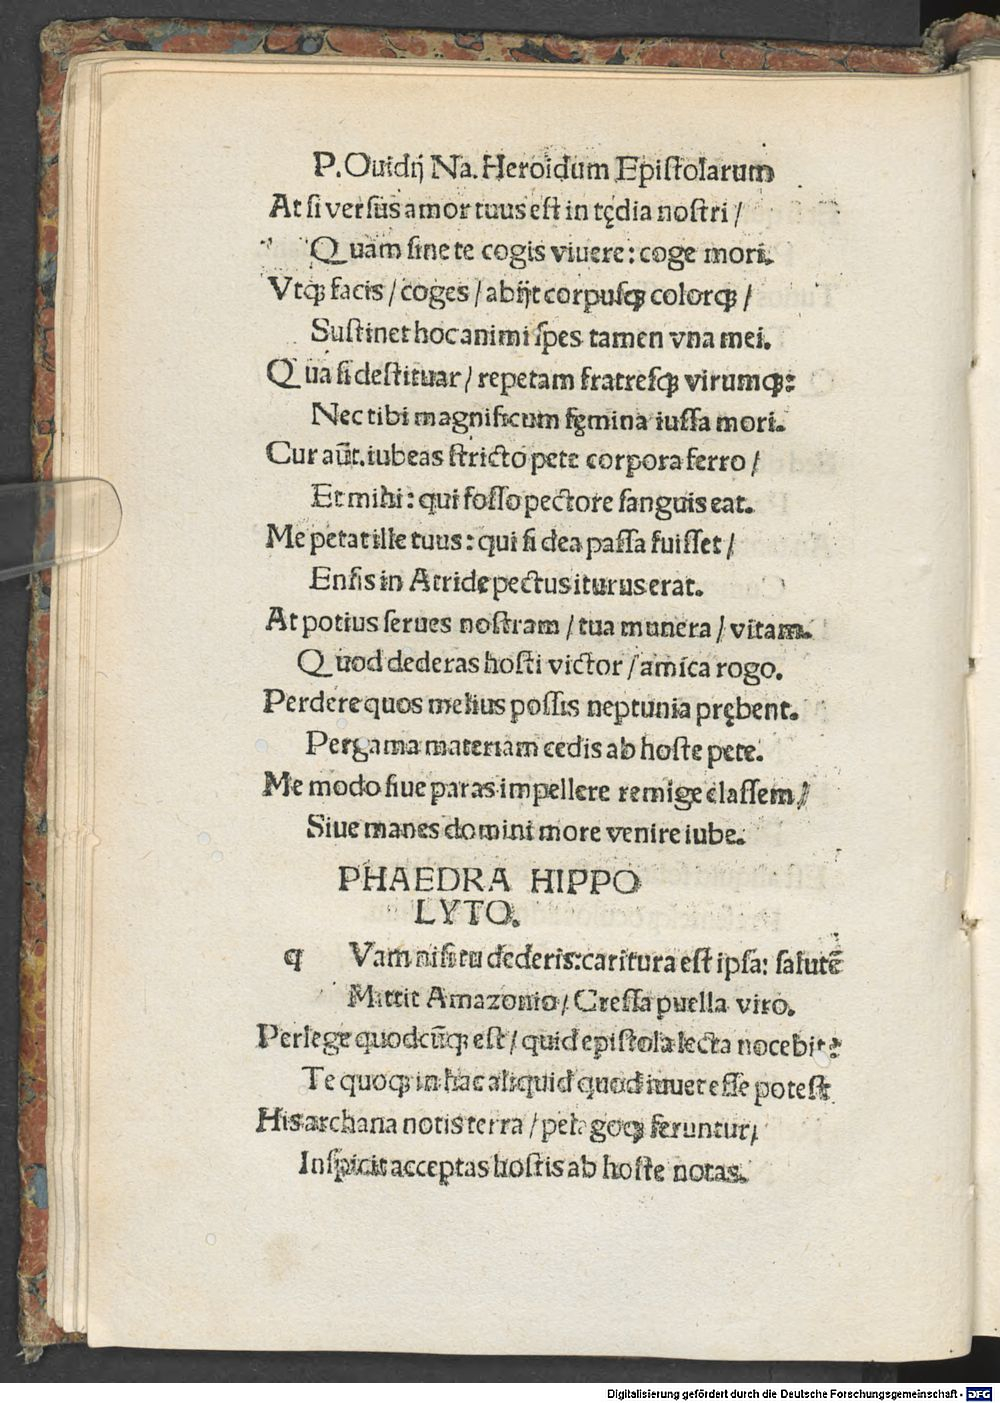 P. Ouidij Na. Heroidum Epistolarum
At si versus amor tuus est in tędia nostri /
Quam sine te cogis viuere: coge mori.
Vtqꝫ facis / coges / abijt corpusqꝫ colorqꝫ /
Sustinet hoc animi spes tamen vna mei.
Qua si destituar / repetam fratresqꝫ virumqꝫ:
Nec tibi magnificum fęmina iussa mori.
Cur aūt. iubeas stricto pete corpora ferro /
Et mihi: qui fosso pectore sanguis eat.
Me petat ille tuus: qui si dea passa fuisset /
Ensis in Atridę pectus iturus erat.
At potius serues nostram / tua munera / vitam.
Quod dederas hosti victor / amica rogo.
Perdere quos melius possis neptunia prębent.
Pergama materiam cedis ab hoste pete.
Me modo siue paras impellere remige classem /
Siue manes domini more venire iube.
PHAEDRA HIPPO
LYTO.
q Vam nisi tu dederis: caritura est ipsa: salutē
Mittit Amazonio / Cressa puella viro.
Perlege quodcūqꝫ est / quid epistola lecta nocebit?
Te quoqꝫ in hac aliquid quod iuuet esse potest
His archana notis terra / pelagoqꝫ feruntur /
Inspicit acceptas hostis ab hoste notas.
Digitalisierung gefördert durch die Deutsche Forschungsgemeinschaft - DFG